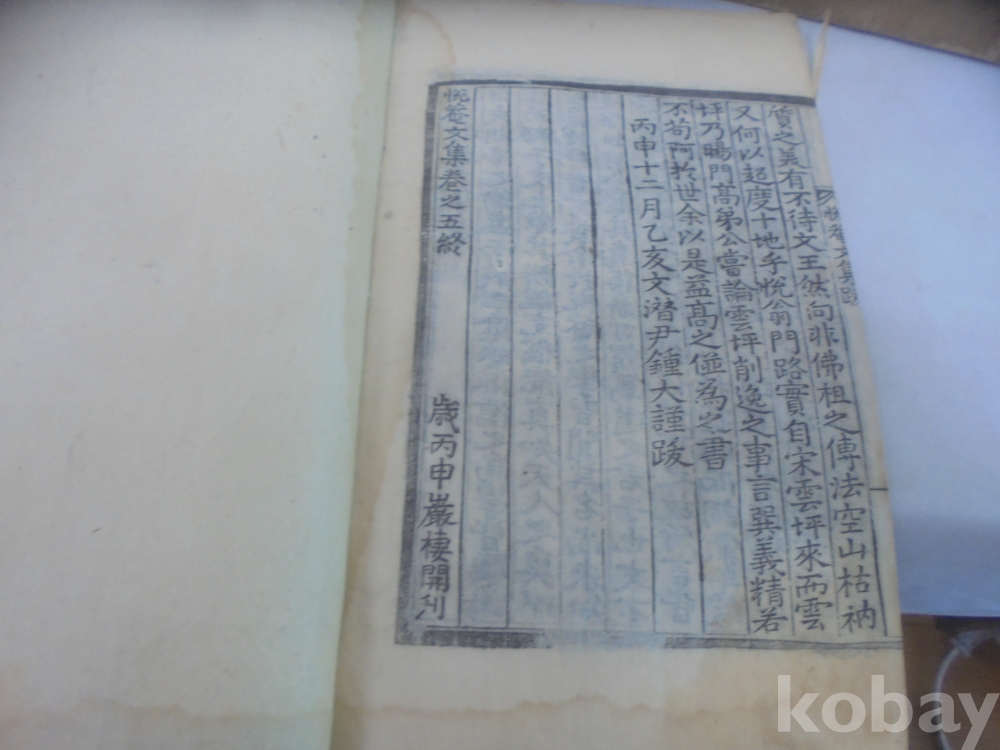 悅菴文集跋
質之美有不待文王然向非佛祖之傳法空山枯衲
又何以超度十地乎悅翁門路實自宋雲坪來而雲
坪乃暘門高弟公嘗論雲坪削逸之事言巽義精若
不苟阿於世余以是益高之傞為之書
丙申十二月乙亥文潛尹鍾大謹跋
悅菴文集卷之五終
歲丙申巖棲開刊
kobay